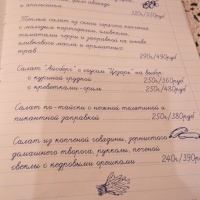 и апельсина
250г/350руб
Теплый салат из семги горячего копчения
с молодым картофелем, оливками,
томатами черри и заправкой на основе
оливкового масла и ароматных
трав
290г/490руб
Салат "Айсберг" с соусом "Цезарь" на выбор
с куриной грудкой 250г/360руб
креветками-гриль 250г/480руб
Салат по-тайски с нежной телятиной и
пикантной заправкой
250г/380руб
Салат из копченой говядины, зернистого
домашнего творога, рукколы, печеной
свеклы с кедровыми орешками
240г/390